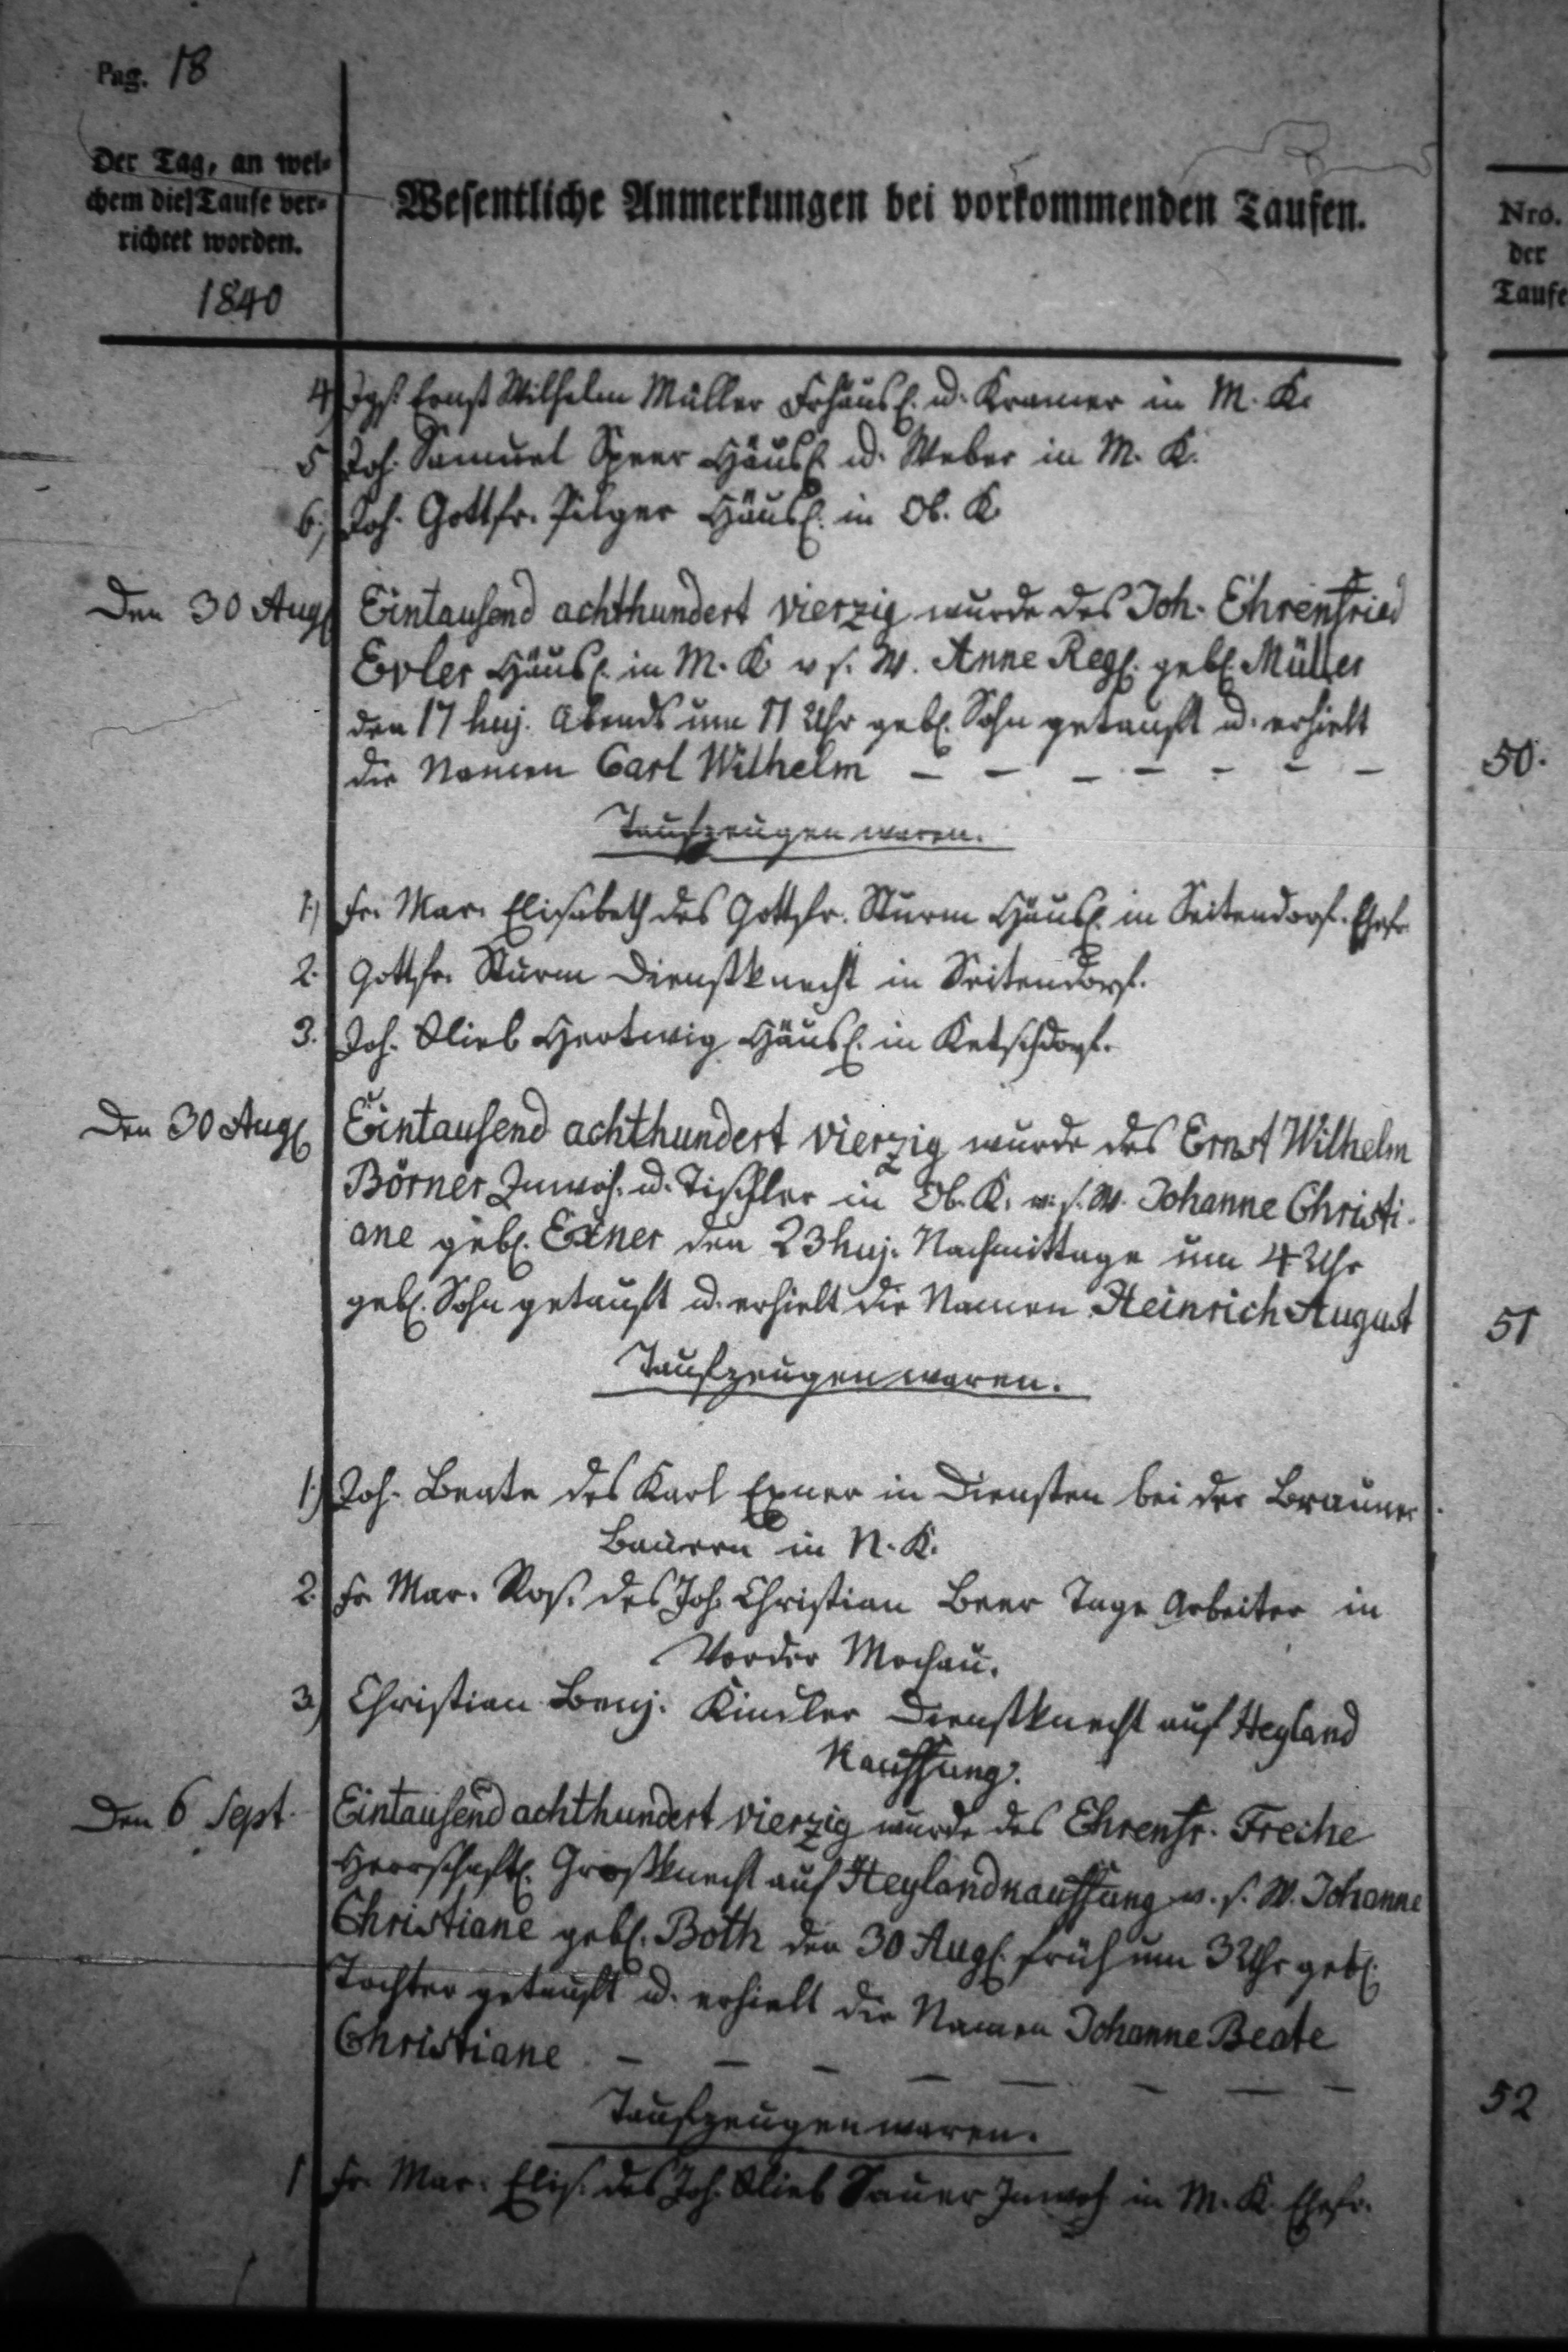 Pag. 18
Der Tag, an wel-
chem die Taufe ver-
richtet worden.
1840
Wesentliche Anmerkungen bei vorkommenden Taufen.
Nro.
der
Taufe
4) Jgs. Ernst Wilhelm Müller Frhäusl. u. Kramer in M. K.
5 Joh. Samuel Speer Häusl. u. Weber in M. K.
6.) Joh. Gottfr. Pilger Häusl. in Ob. K.
Den 30 Aug. Eintausend achthundert vierzig wurde des Joh. Ehrenfried
Evler Häusl. in M. K. v. s. W. Anne Reg. geb. Müller
den 17 huj. Abends um 11 Uhr geb. Sohn getauft u. erhielt
die Namen Carl Wilhelm – – – – – – – 50.
Taufzeugen waren.
1.) Fr. Mar. Elisabeth des Gottfr. Sturm Häusl. in Seitendorf. Ehefr.
2. Gottfr. Sturm Dienstknecht in Seitendorf.
3. Joh. Glieb Hertwig Häusl. in Ketschdorf.
Den 30 Aug. Eintausend achthundert vierzig wurde des Ernst Wilhelm
Börner Inwoh. u. Tischler in Ob. K. v. s. W. Johanne Christi-
ane geb. Exner den 23 huj. Nachmittage um 4 Uhr
geb. Sohn getauft u. erhielt die Namen Heinrich August 51
Taufzeugen waren.
1.) Joh. Beate des Karl Exner in Diensten bei der Brauner
Bauern in N. K.
2. Fr. Mar. Ros. des Joh. Christian Beer Tage Arbeiter in
Vorder Mochau.
3.) Christian Benj. Kindler Dienstknecht auf Heyland
Kauffung.
Den 6 Sept. Eintausend achthundert vierzig wurde des Ehrenfr. Freche
Herrschaftl. Großknecht auf Heylandkauffung v. s. W. Johanne
Christiane geb. Both den 30 Aug. früh um 3 Uhr geb.
Tochter getauft u. erhielt die Namen Johanne Beate
Christiane – – – – – – – – 52
Taufzeugen waren.
1 Fr. Mar. Elis. des Joh. Glieb Sauer Inwoh. in M. K. Ehefr.